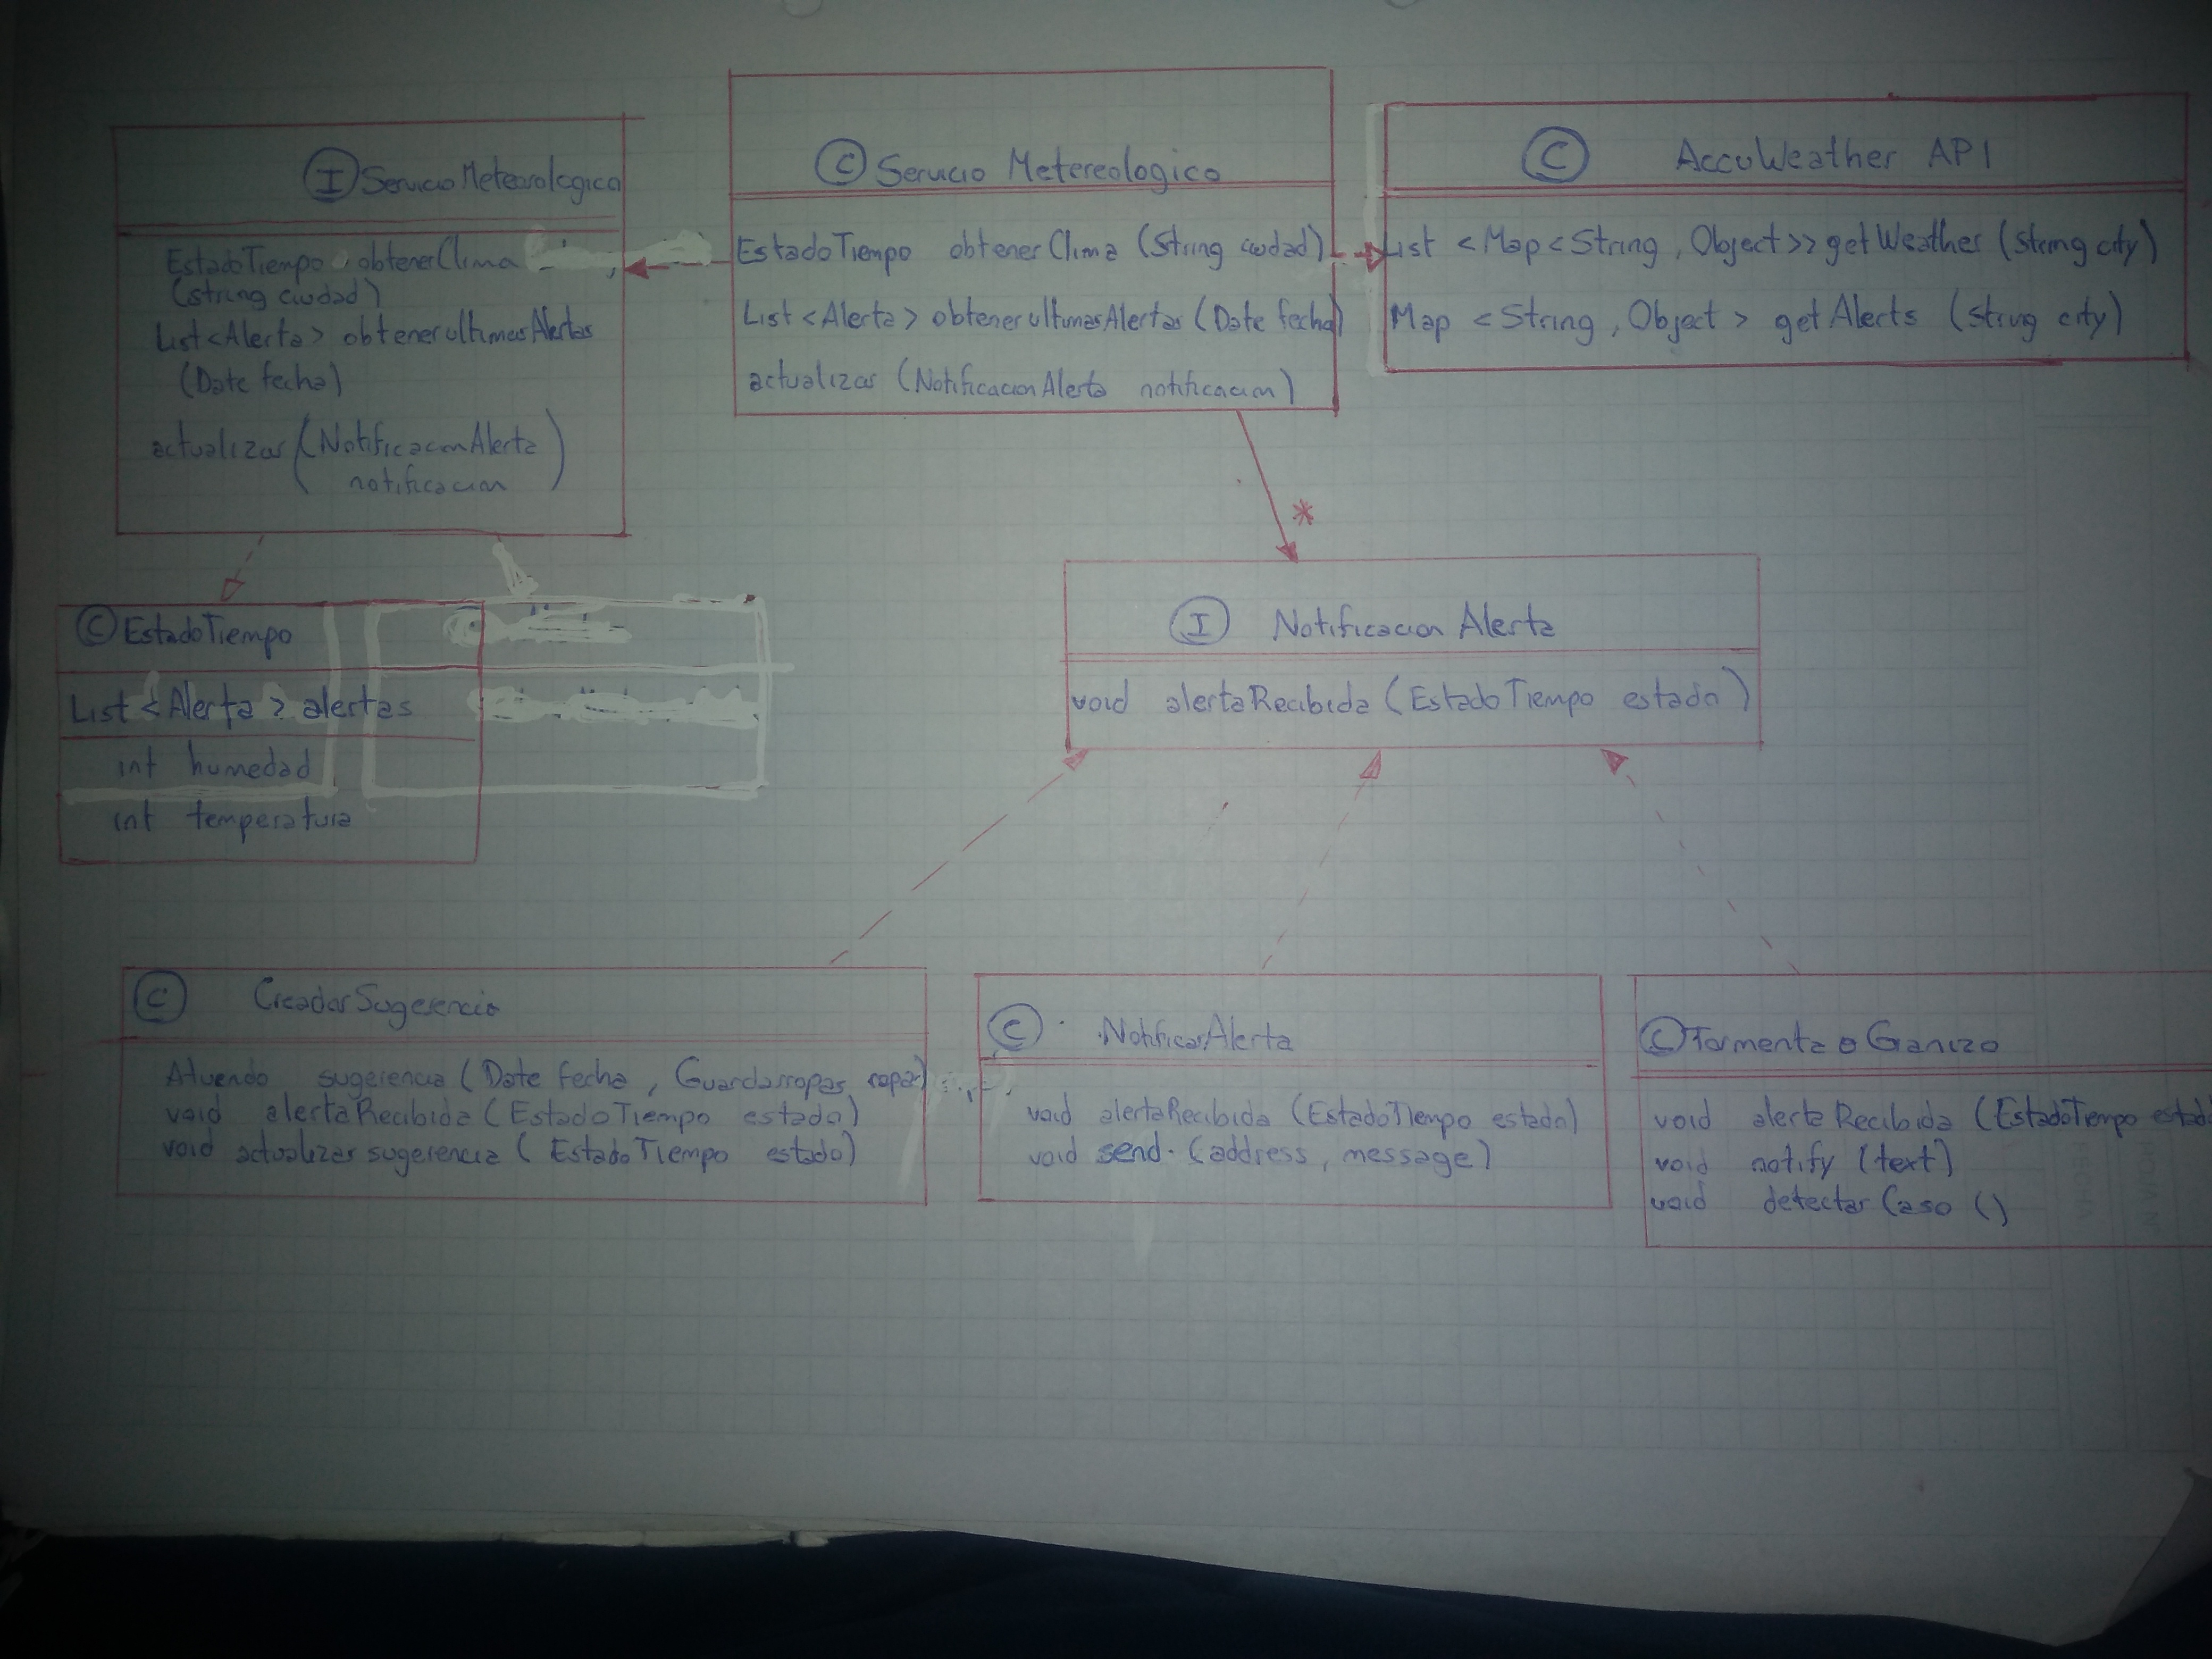 I Servicio Meteorologico
EstadoTiempo obtenerClima
(string ciudad)
List <Alerta> obtenerultimasAlertas
(Date fecha)
actualizar (NotificacionAlerta
notificacion)
C Servicio Metereologico
EstadoTiempo obtenerClima (String ciudad)
List <Alerta> obtenerultimasAlertas (Date fecha)
actualizar (NotificacionAlerta notificacion)
C AccuWeather API
List <Map<String, Object>> getWeather (string city)
Map <String, Object> getAlerts (string city)
*
C EstadoTiempo
List <Alerta> alertas
int humedad
int temperatura
I Notificacion Alerta
void alertaRecibida (EstadoTiempo estado)
C CreadorSugerencia
Atuendo sugerencia (Date fecha, Guardarropas ropa)
void alertaRecibida (EstadoTiempo estado)
void actualizar sugerencia (EstadoTiempo estado)
C NotificarAlerta
void alertaRecibida (EstadoTiempo estado)
void send (address, message)
C Tormenta o Granizo
void alerta Recibida (EstadoTiempo estad
void notify (text)
void detectar Caso ()